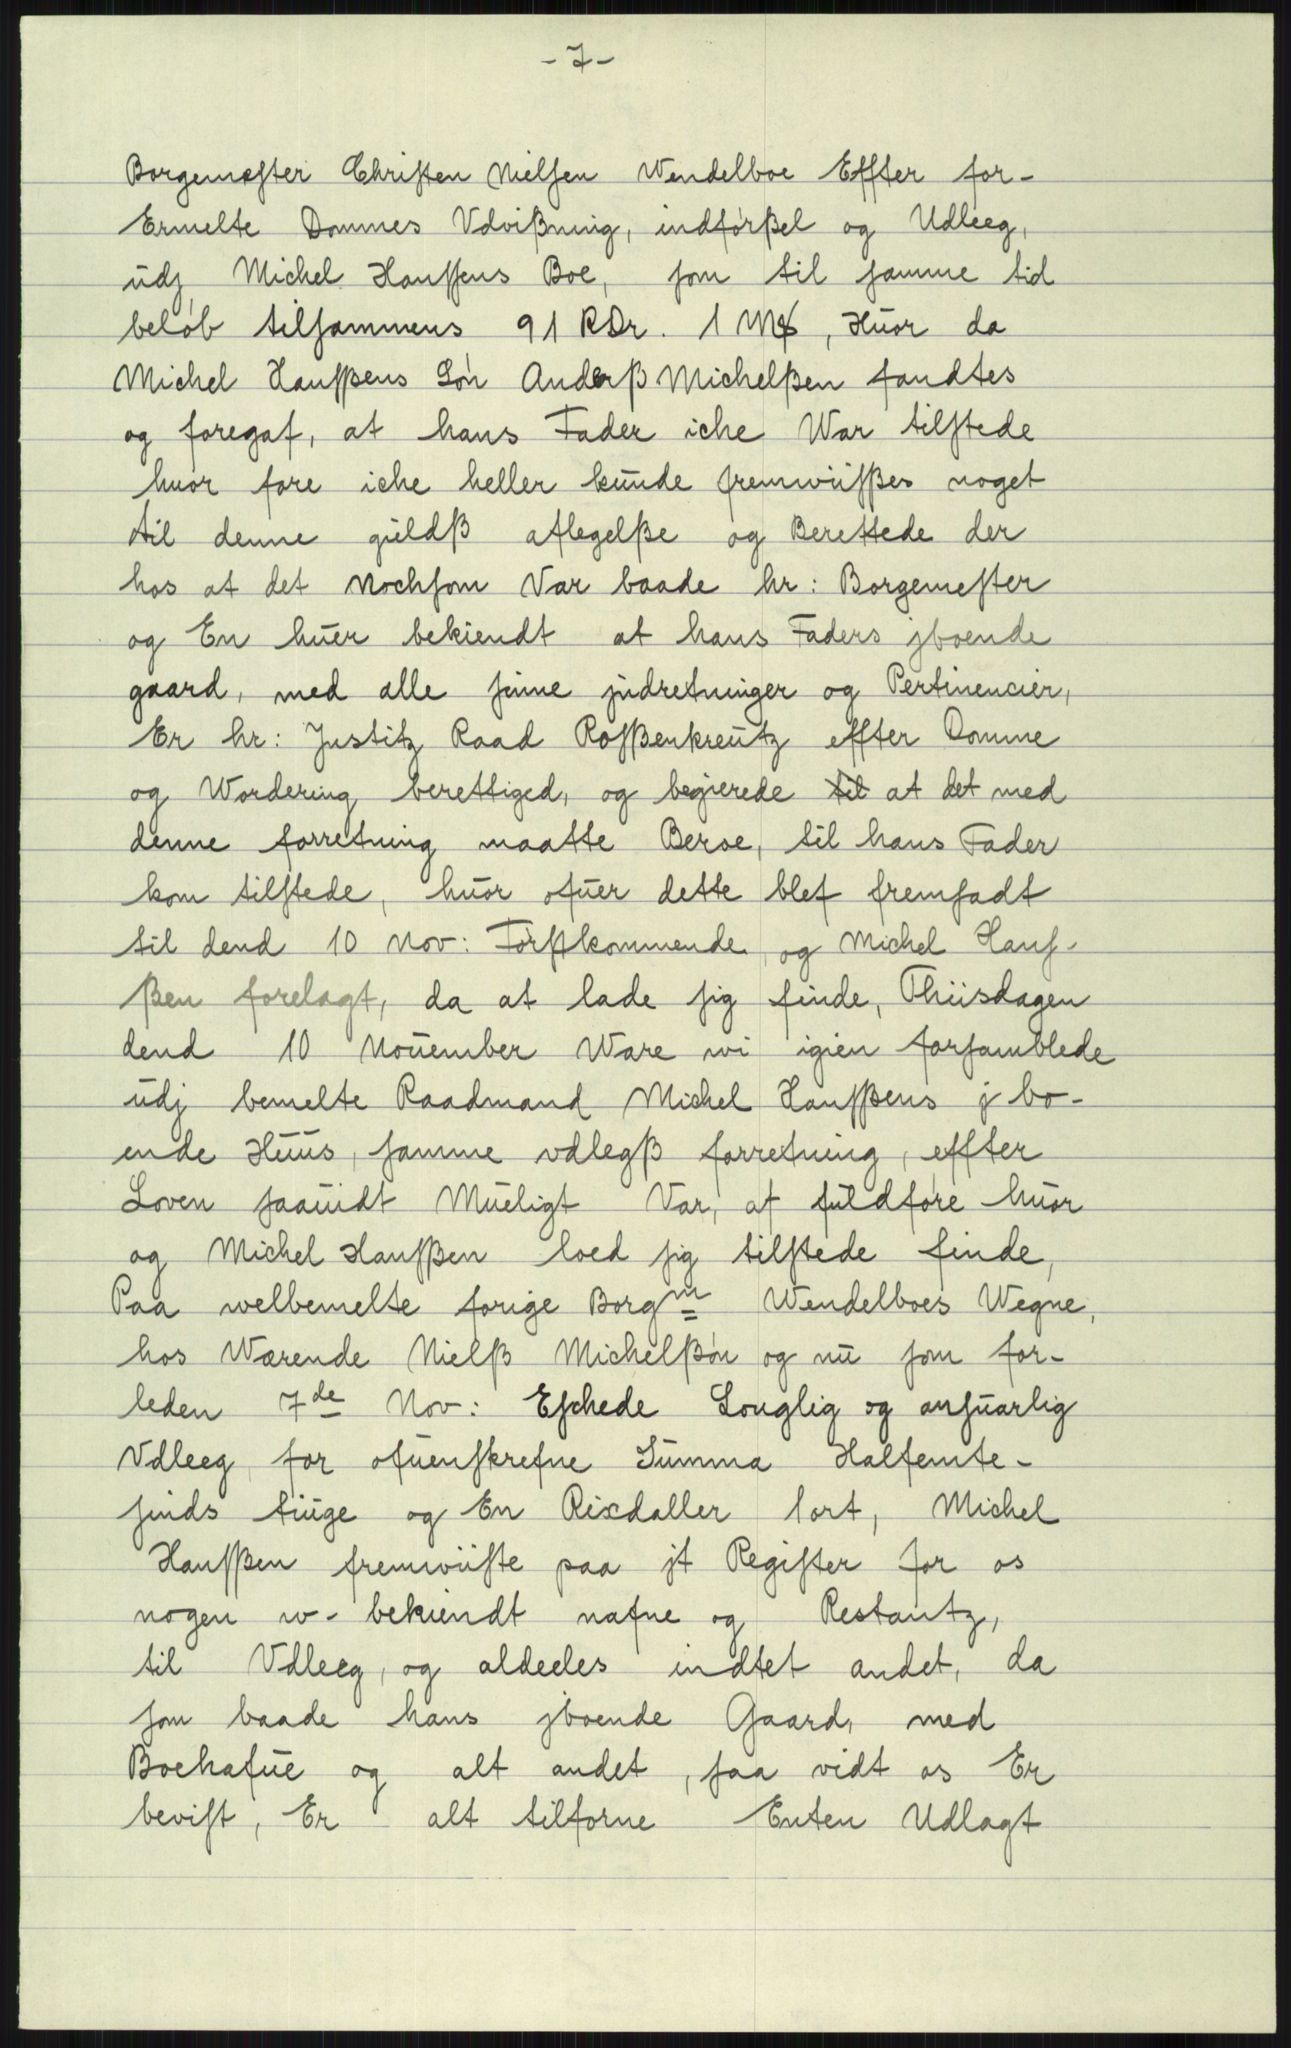 - 7 -
Borgemester Christen Nielsen Wendelboe Effter for-
Ermelte Dommes Vdvißning, indførßel og Udleeg,
udj Michel Hanssens Boe, som til samme tid
beløb tilsammens 91 RDr. 1 M&, Huor da
Michel Hansßens Søn Anderß Michelßen fandtes
og foregaf, at hans Fader iche War tilstede
huor fore iche heller kunde fremwiisßes noget
til denne gieldß aflegelße og Berettede der
hos at det Nochsom Var baade hr: Borgemester
og En huer bekiendt at hans Faders jboende
gaard, med alle sinne jndretninger og Pertinencier,
Er hr: Justitz Raad Rosßenkreutz effter Domme
og Wordering berettiged, og begierede til at det med
denne forretning maatte Beroe, til hans Fader
kom tilstede, huor ofuer dette blef fremsadt
til dend 10 Nov: Førstkommende, og Michel Hans-
ßen forelagt, da at lade sig finde, Thiisdagen
dend 10 Nouember Ware wi igien forsamblede
udj bemelte Raadmand Michel Hansßens j bo-
ende Huus, samme vdlegß forretning, effter
Loven saauidt Mueligt Var, at fuldføre huor
og Michel Hansßen loed sig tilstede finde,
Paa welbemelte forige Borgm Wendelboes Wegne,
hos Wærende Nielß Michelßøn og nu som for-
leden 7de Nov: Eschede Louglig og ansuarlig
Vdleeg for ofuenskrefne Summa Halfemte-
sinds tiuge og En Rixdaller 1ort, Michel
Hansßen fremwiiste paa jt Register for os
nogen w-bekiendt nafne og Restantz,
til Vdleeg, og aldeeles indtet andet, da
som baade hans jboende Gaard, med
Boehafue og alt andet, saa vidt os Er
bevist, Er alt tilforne Enten Udlagt